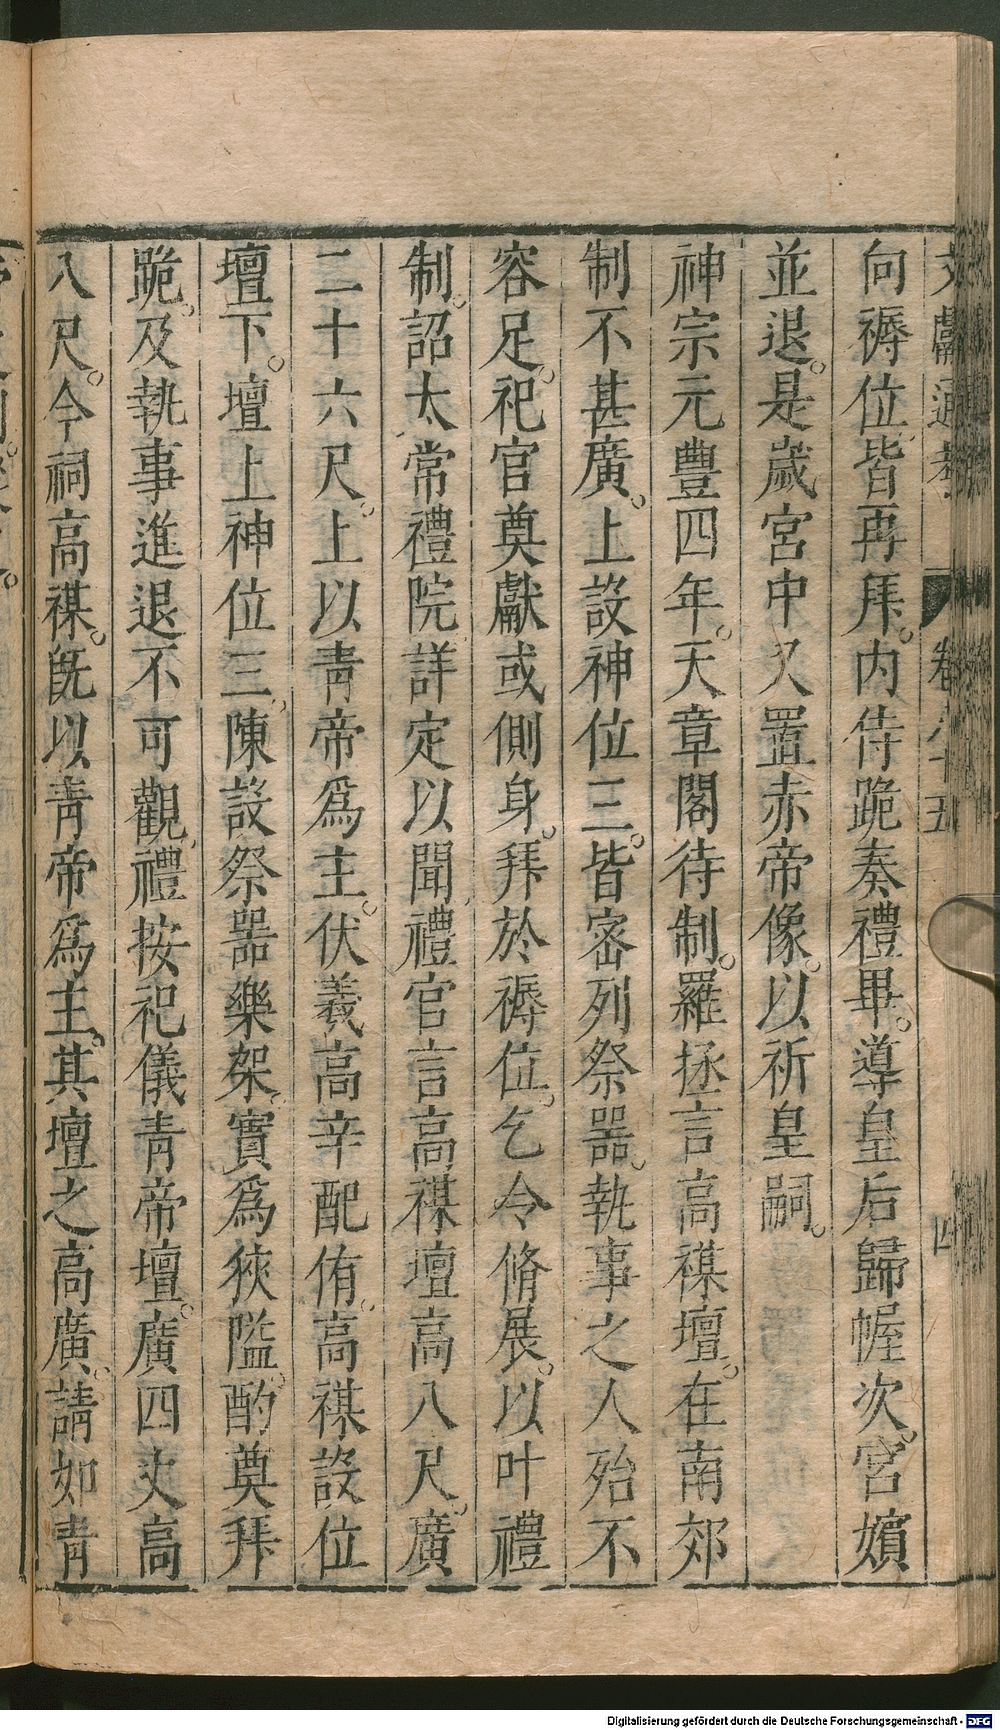 文獻通考 卷八十五 四
向褥位皆再拜。内侍跪奏禮畢。導皇后歸幄次。宮嬪
並退。是歲宮中又置赤帝像。以祈皇嗣。
神宗元豐四年。天章閣待制。羅拯言高禖壇。在南郊
制不甚廣。上設神位三。皆密列祭器。執事之人殆不
容足。祀官奠獻或側身。拜於褥位。乞令脩展。以叶禮
制。詔太常禮院詳定以聞禮官言高禖壇高八尺。廣
二十六尺。上以青帝爲主。伏羲高辛配侑。高禖設位
壇下。壇上神位三。陳設祭器。樂架。實爲狹隘。酌奠拜
跪。及執事進退不可觀禮按祀儀青帝壇。廣四丈高
八尺。今祠高禖。旣以青帝爲主。其壇之高廣。請如青
Digitalisierung gefördert durch die Deutsche Forschungsgemeinschaft - DFG